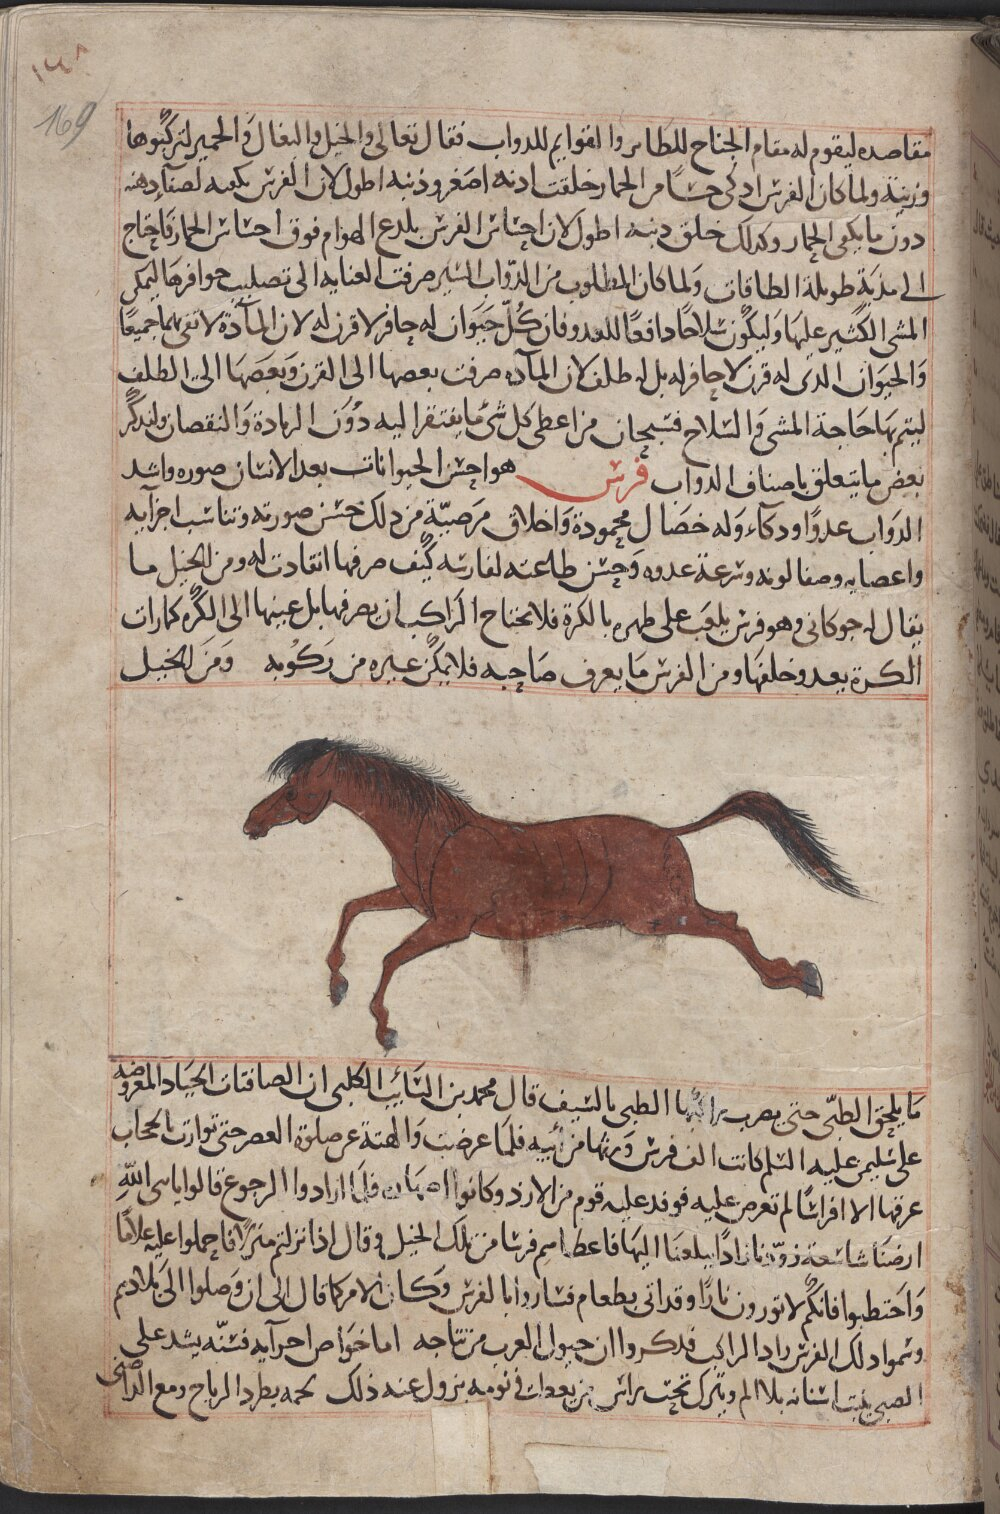 ١٤٨
169
مقاصده ليقوم له مقام الجناح للطاير والقوايم للدواب فقال تعالى والخيل والبغال والحمير لتركبوها
وزينة ولما كان الفرس اذكى حسا من الحمار خلقت اذنه اصغر وذنبه اطول لان الفرس يكفيه لصفا ذهنه
دون ما يكفي الحمار وكذلك خلق ذنبه اطول لان احساس الفرس بلدع الهوام فوق احساس الحمار فاحتاج
الى مذبة طويلة الطاقات ولما كان المطلوب من الدواب السير صرفت العناية الى تصليب حوافرها ليمكن
المشى الكثير عليها وليكون سلاحا دافعا للعدو فان كل حيوان له حافر لا قرن له لان المادة لا تفى بهما جميعا
والحيوان الذى له قرن لا حافر له بل له ظلف لان الماده صرفت بعضها الى القرن وبعضها الى الظلف
ليتم بها حاجة المشى والسلاح فسبحان من اعطى كل شئ ما يفتقر اليه دون الزيادة والنقصان ولنذكر
بعض ما يتعلق باصناف الدواب فرس هو احسن الحيوانات بعد الانسان صوره واشد
الدواب عدوا وذكاء وله خصال محمودة واخلاق مرضية من ذلك حسن صورته وتناسب اجزايه
واعضايه وصفا لونه وسرعة عدوه وحسن طاعته لفارسه كيف صرفها انقادت له ومن الخيل ما
يقال له جوكانى وهو فرس يلعب على ظهره بالكرة فلا يحتاج الراكب ان يصرفها بل عينها الى الكره كلما رات
الكرة يعدو خلفها ومن الفرس ما يعرف صاحبه فلا يمكن غيره من ركوبه ومن الخيل
ما يلحق الظبى حتى يضرب راكبها الظبى بالسيف قال محمد بن السايب الكلبى ان الصافنات الجياد المعروضه
على سليمن عليه السلم كانت الف فرس ورثها من ابيه فلما عرضت والهته عن صلوة العصر حتى توارت بالحجاب
عرقبها الا افراسا لم تعرض عليه فوفد عليه قوم من الازد وكانوا اصهاره فلما ارادوا الرجوع قالوا يا نبى الله
ارضنا شاسعة زودنا زادا يبلغنا اليها فاعطاهم فرسا من تلك الخيل وقال اذا نزلتم منزلا فاحملوا عليه غلاما
واحتطبوا فانكم لا تورون نارا وقد اتى بطعام فساروا بالفرس وكان الامر كما قال الى ان وصلوا الى بلادهم
وسموا ذلك الفرس زاد الراكب فذكروا ان خيول العرب من نتاجه اما خواص اجزآيه فسنه يشد على
الصبى ينبت اسنانه بلا الم ويترك تحت راس من يغط فى نومه يزول عنه ذلك لحمه يطرد الرياح دمع